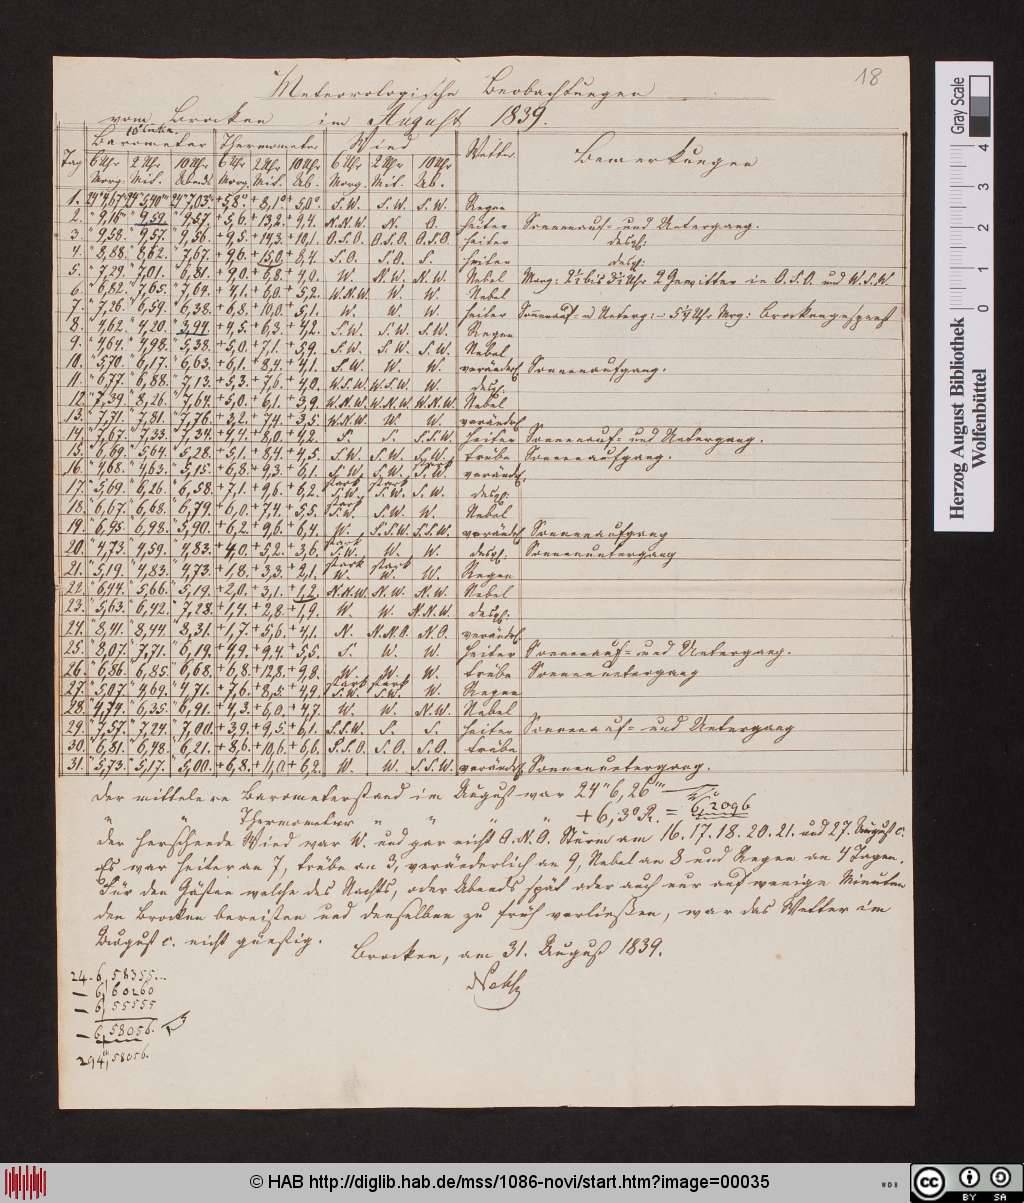 18
Meteorologische Beobachtungen
vom Brocken im August 1839.
Tag Barometer Thermometer Wind Wetter Bemerkungen
6 Uhr 2 Uhr 10 Uhr 6 Uhr 2 Uhr 10 Uhr 6 Uhr 2 Uhr 10 Uhr
Morg. Mit. Abends Morg. Mit. Ab. Morg. Mit. Ab.
1. 24" 4,67 24" 5,40 24" 7,03 +5,8° +8,1° +5,0° S.W. S.W. S.W. Regen
2. " 9,16 " 9,59. " 9,57. +5,6. +13,2. +9,4. N.N.W. N. O. heiter Sonnenauf- und Untergang.
3. " 9,58. " 9,57. " 7,56. +9,5. +14,3. +10,1. O.S.O. O.S.O. O.S.O. heiter desgl.
4. " 8,88. " 8,62. " 7,67. +9,6. +15,0. +8,4. S.O. S.O. S. heiter desgl.
5. " 7,29. " 7,01. " 6,81. +9,0. +6,8. +4,0. W. N.W. N.W. Nebel Morg: bis Uhr 2 Gewitter in O.S.O. und W.S.W.
6. " 6,82. " 7,65. " 7,64. +4,1. +6,0. +5,2. W.N.W. W. W. Nebel
7. " 7,26. " 6,59. " 6,38. +6,8. +10,0. +5,1. W. W. W. heiter Sonnenauf- u Unterg: - Uhr Mrg: Brockengespenst
8. " 4,62. " 4,20. " 3,94. +4,5. +6,3. +4,2. S.W. S.W. S.W. Regen
9. " 4,64. " 4,98. " 5,38. +5,0. +7,1. +5,9. S.W. S.W. S.W. Nebel
10. " 5,70. " 6,17. " 6,63. +6,1. +8,4. +4,1. S.W. W. W. verändl. Sonnenaufgang.
11. " 6,77. " 6,88. " 7,13. +5,3. +7,6. +4,0. W.S.W. W.S.W. W. desgl.
12. " 7,39. " 8,26. " 7,64. +5,0. +6,1. +3,9. W.N.W. W.N.W. W.N.W. Nebel
13. " 7,71. " 7,81. " 7,76. +3,2. +7,4. +3,5. W.N.W. W. W. verändl.
14. " 7,67. " 7,33. " 7,34. +4,4. +8,0. +4,2. S. S. S.S.W. heiter Sonnenauf- und Untergang.
15. " 6,69. " 5,64. " 5,28. +5,1. +8,4. +4,5. S.W. S.W. S.W. trübe Sonnenaufgang.
16. " 4,68. " 4,63. " 5,15. +6,8. +9,3. +6,1. S.W. S.W. stark S.W. verändl.
17. " 5,69. " 6,26. " 6,58. +7,1. +9,6. +6,2. stark S.W. stark S.W. S.W. desgl.
18. " 6,67. " 6,68. " 6,79. +6,0. +7,4. +5,5. stark S.W. S.W. W. Nebel
19. " 6,95. " 6,98. " 5,90. +6,2. +9,6. +6,4. W. S.S.W. S.S.W. verändl. Sonnenaufgang
20. " 4,73. " 4,59. " 4,83. +4,0. +5,2. +3,6. stark S.W. W. W. desgl. Sonnenuntergang
21. " 5,19. " 4,83. " 4,73. +1,8. +3,3. +2,1. stark W. stark W. W. Regen
22. " 6,44. " 5,66. " 5,19. +2,0. +3,1. +1,2. N.N.W. N.W. N.W. Nebel
23. " 5,63. " 6,42. " 7,28. +1,4. +2,8. +1,9. W. W. N.N.W. desgl.
24. " 8,41. " 8,44. " 8,31. +1,7. +5,6. +4,1. N. N.N.O. N.O. verändl.
25. " 8,07. " 7,71. " 6,19. +4,9. +9,4. +5,5. S. W. W. heiter Sonnenauf- und Untergang.
26. " 6,86. " 6,85. " 6,68. +6,8. +12,8. +9,3. W. W. W. trübe Sonnenuntergang
27. " 5,07. " 4,69. " 4,71. +7,6. +8,5. +4,9. stark S.W. stark S.W. W. Regen
28. " 4,74. " 6,35. " 6,91. +4,3. +6,0. +4,7. W. W. N.W. Nebel
29. " 7,57. " 7,24. " 7,00. +3,9. +9,5. +6,1. S.S.W. S. S. heiter Sonnenauf- und Untergang
30. " 6,81. " 6,48. " 6,21. +8,6. +10,6. +6,6. S.S.O. S.O. S.O. trübe
31. " 5,73. " 5,17. " 5,00. +6,8. +11,0. +6,2. W. W. S.S.W. verändl. Sonnenuntergang.
der mittelere Barometerstand im August war 24" 6,26'''
" Thermometer " " " " +6,3° R. = 6,2096
der herrschende Wind war W. und gar nicht O.N.O. Sturm am 16. 17. 18. 20. 21. und 27. August c.
Es war heiter an 7, trübe an 3, veränderlich an 9, Nebel an 8 und Regen an 4 Tagen.
Für den Gästen welche des Nachts, oder Abends spät oder auch nur auf wenige Minuten
den Brocken bereisten und denselben zu früh verließen, war das Wetter im
August c. nicht günstig.
Brocken, am 31. August 1839.
Nehse
24. 6,58355...
- 6,60260
- 6,55555
- 6,58056.
294,58056.
Herzog August Bibliothek
Wolfenbüttel
Gray Scale
0 1 2 3 4
© HAB http://diglib.hab.de/mss/1086-novi/start.htm?image=00035
WDB
cc BY SA